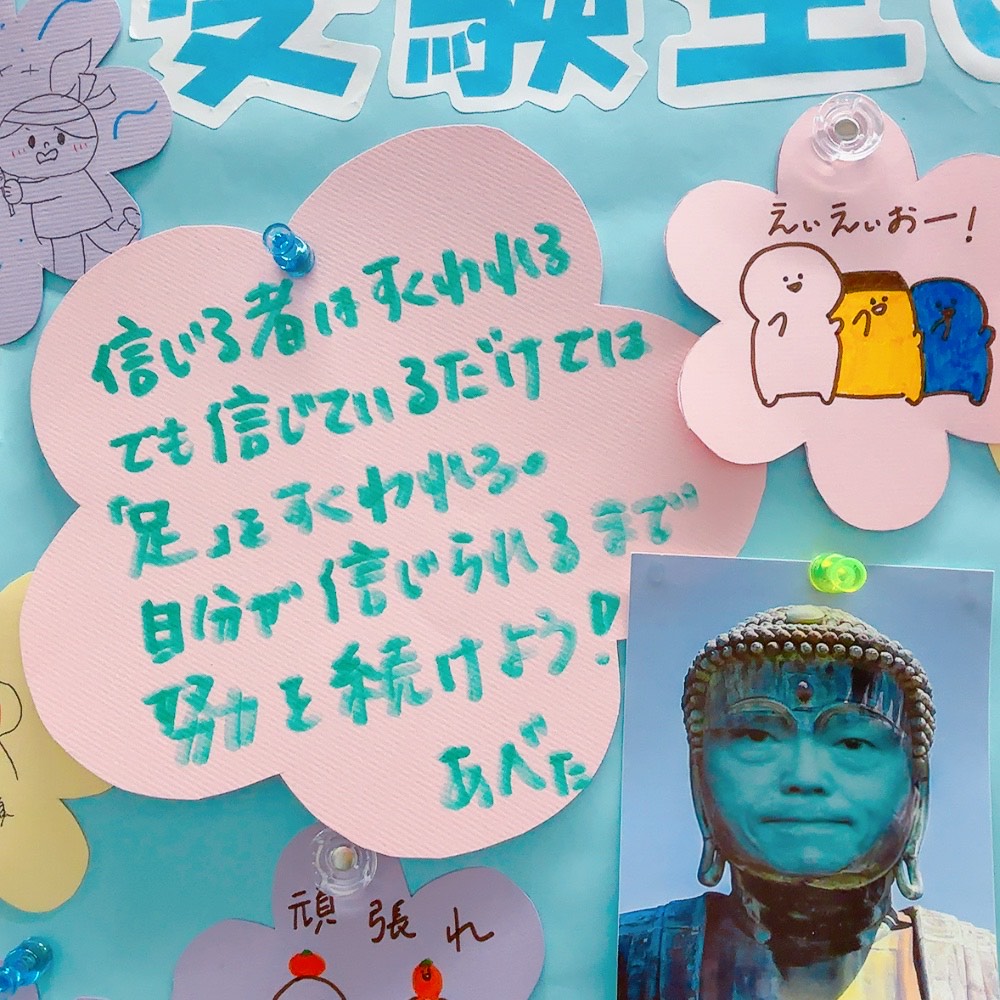 受験生
えぃえぃおー!
信じる者はすくわれる
でも信じているだけでは
「足」をすくわれる。
自分が信じられるまで
努力を続けよう!
あべた
頑張れ